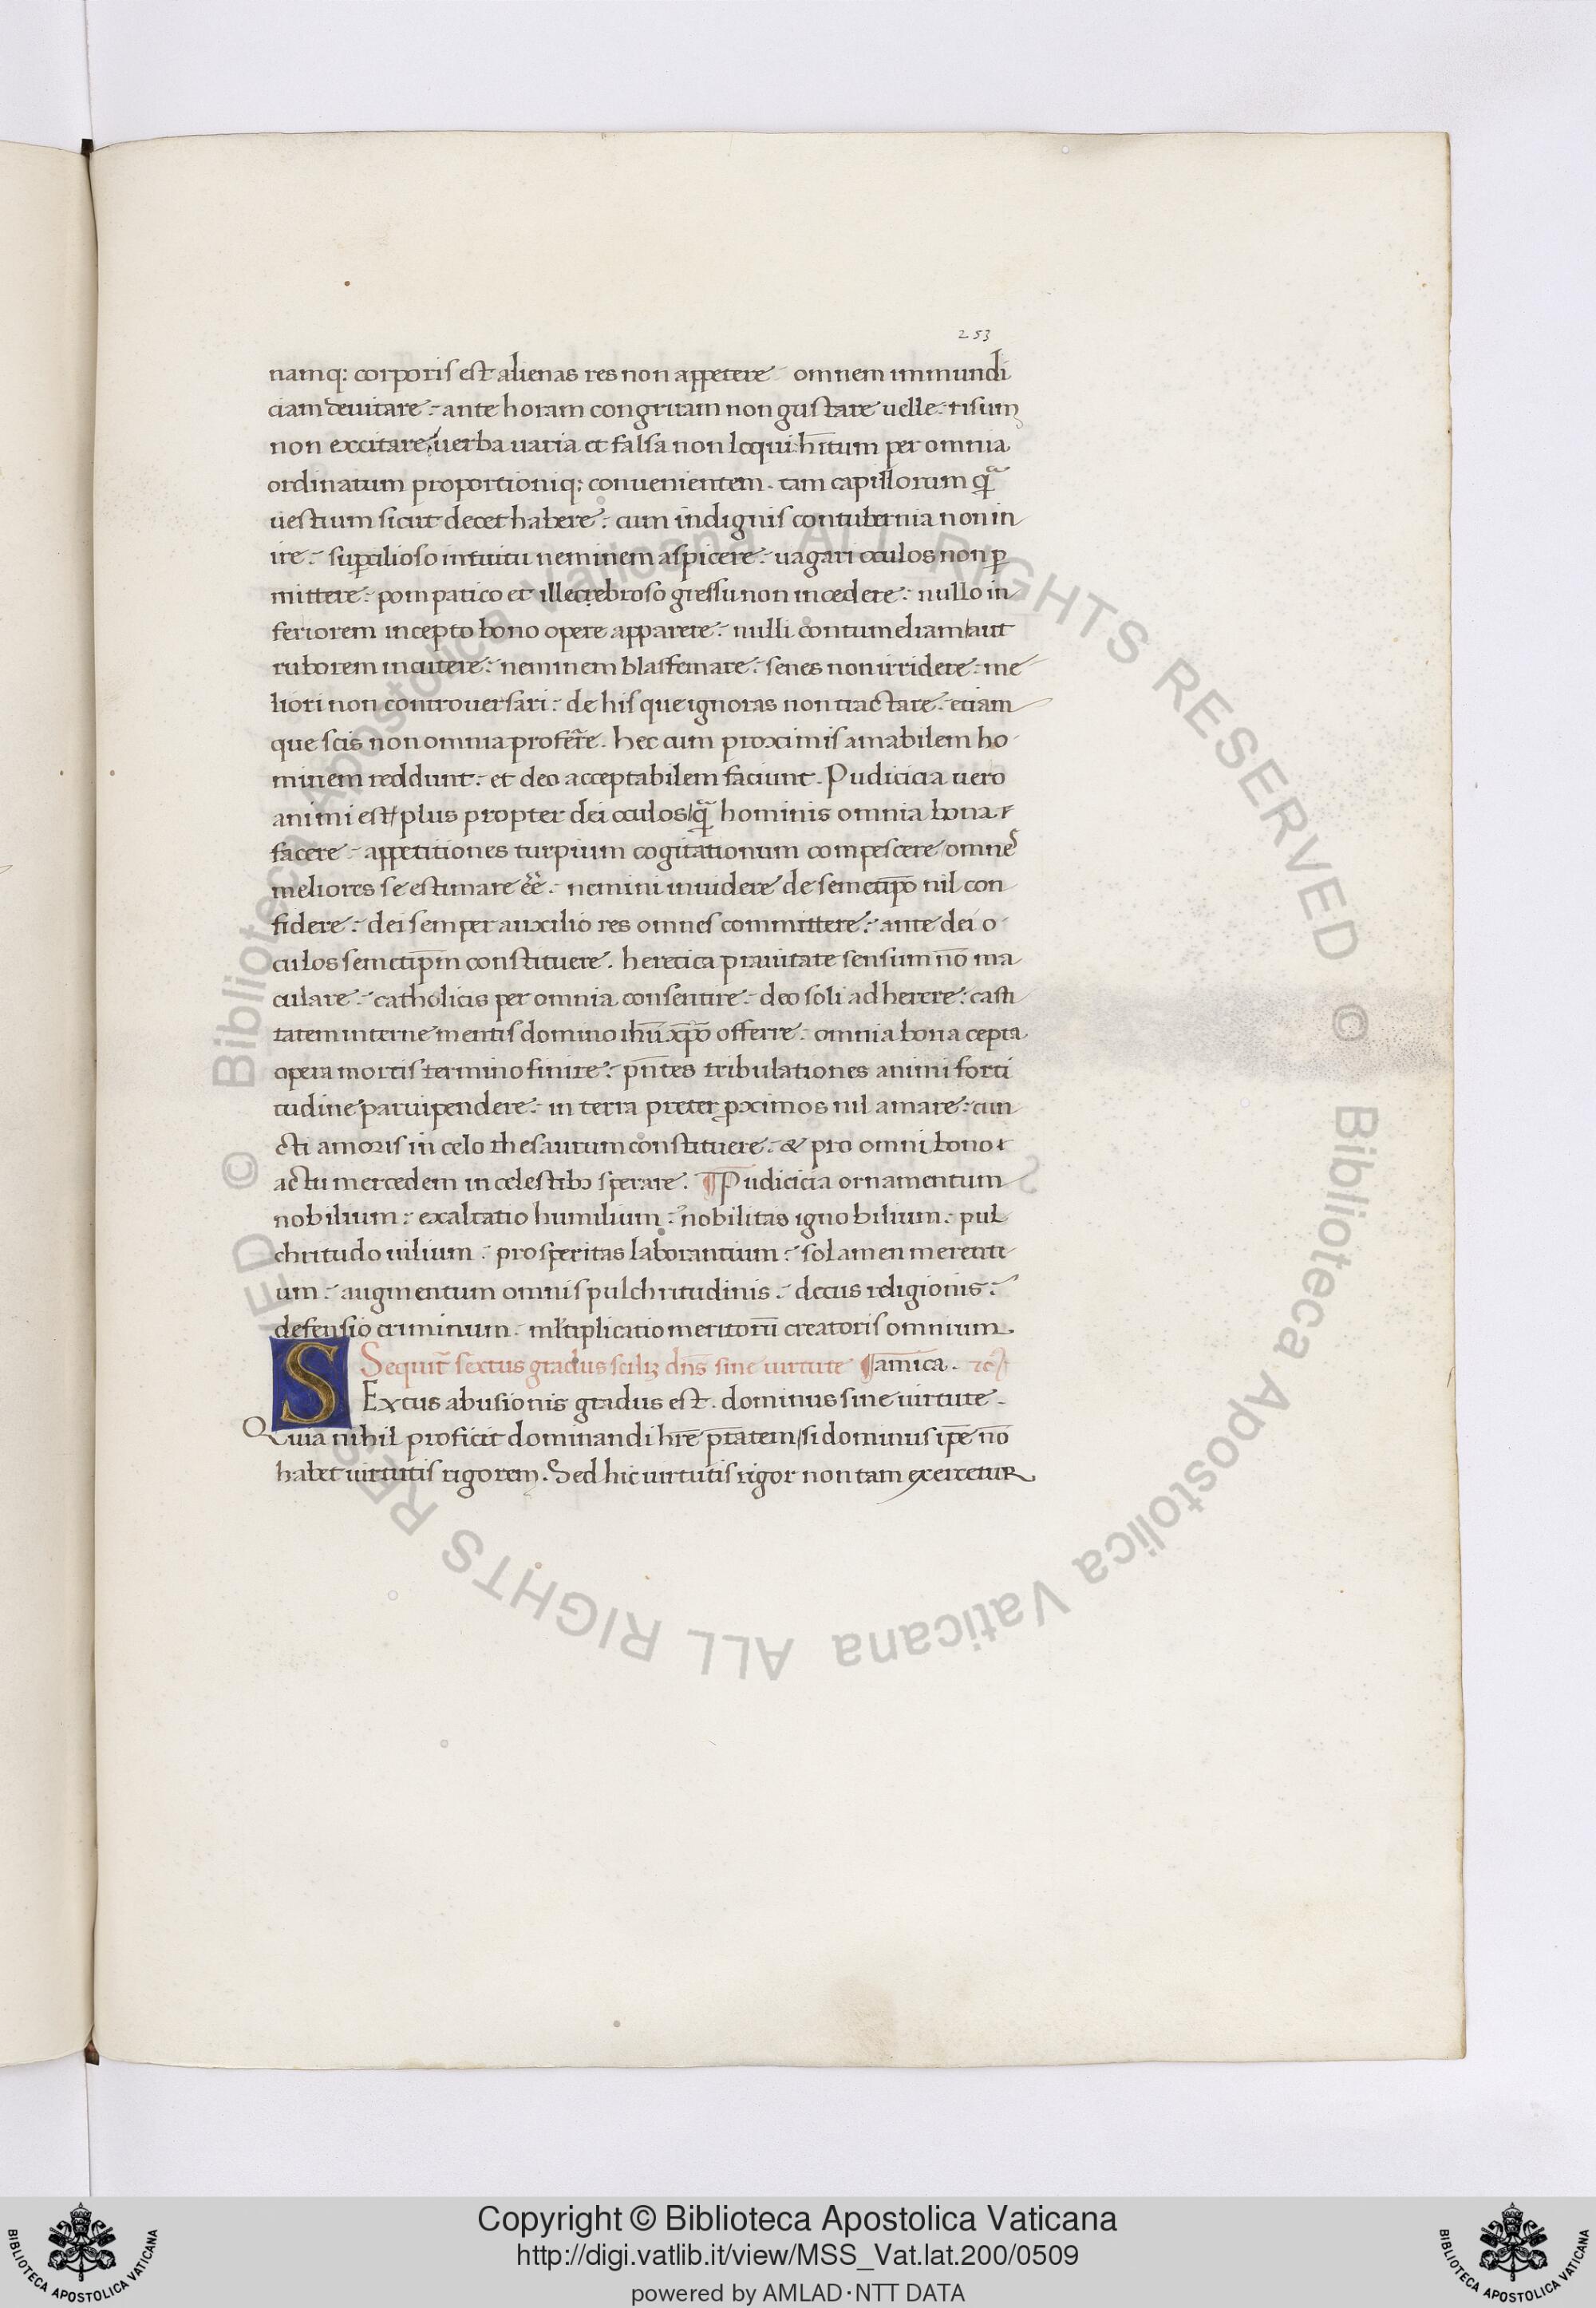 253
namq: corporis est alienas res non appetere omnem immundi
ciam deuitare : ante horam congruam non gustare uelle : risum
non excitare : uerba uaria et falsa non loqui hītum per omnia
ordinatum proportioniq: conuenientem . tam capillorum q̄
uestium sicut decet habere : cum indignis contubernia non in
ire : suꝑcilioso intuitu neminem aspicere : uagari oculos non ꝑ
mittere : pompatico et illecebroso gressu non incedere : nullo in
feriorem incepto bono opere apparere : nulli contumeliam / aut
ruborem incutere : neminem blasfemare : senes non irridere : me
liori non controuersari : de his que ignoras non tractare : etiam
que scis non omnia proferr̄e . hec cum proximis amabilem ho
minem reddunt : et deo acceptabilem faciunt . Pudicicia uero
animi est / plus propter dei oculos / q̄ hominis omnia bona
facere : appetitiones turpium cogitationum compescere / omnes
meliores se estimare eē̄ : nemini inuidere de semetip̄o nil con
fidere : dei semper auxilio res omnes committere : ante dei o
culos semetip̄m constituere . heretica prauitate sensum nō ma
culare : catholicis per omnia consentire : deo soli adherere : casti
tatem interne mentis domino ihū xp̄o offerre : omnia bona cepta
opera mortis termino finire : pn̄tes tribulationes animi forti
tudine paruipendere : in terra preter ꝓximos nil amare : cun
cti amoris in celo thesaurum constituere : & pro omni bono
actu mercedem in celestibꝫ sperare . ¶ Pudicicia ornamentum
nobilium : exaltatio humilium : nobilitas ignobilium : pul
chritudo uilium : prosperitas laborantium : solamen merenti
um : augmentum omnis pulchritudinis : decus religionis :
defensio criminum : ml̄tiplicatio meritorū creatoris omnium .
Sequit̄ sextus gradus scilꝫ dn̄s sine uirtute ¶ amica .
SExtus abusionis gradus est . dominus sine uirtute .
Quia nihil proficit dominandi hr̄e ptatem / si dominus ip̄e nō
habet uirtutis rigorem . Sed hic uirtutis rigor non tam exercetur
© Biblioteca Apostolica Vaticana ALL RIGHTS RESERVED © Biblioteca Apostolica Vaticana ALL RIGHTS RESERVED
Copyright © Biblioteca Apostolica Vaticana
http://digi.vatlib.it/view/MSS_Vat.lat.200/0509
powered by AMLAD·NTT DATA
BIBLIOTECA APOSTOLICA VATICANA
BIBLIOTECA APOSTOLICA VATICANA